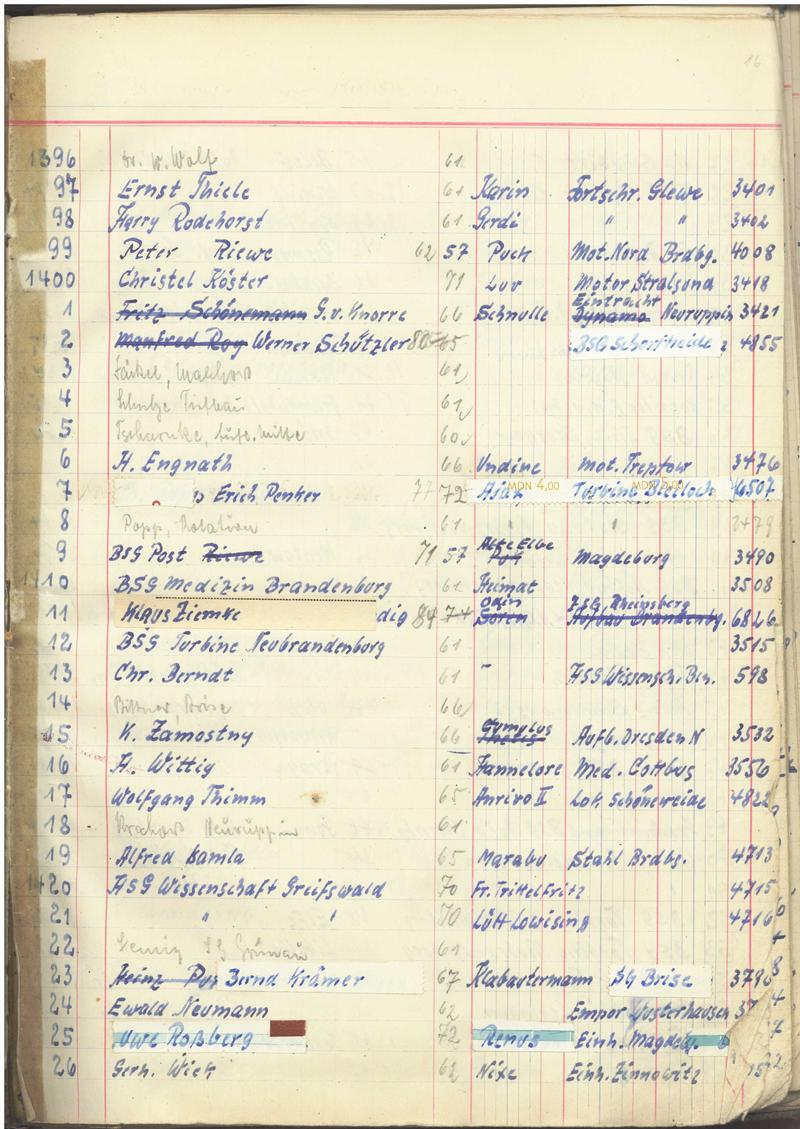 16
1396 Dr. W. Wolf 61
97 Ernst Thiele 61 Karin Fortschr. Glewe 3401
98 Harry Rodehorst 61 Gerdi " " 3402
99 Peter Riewe 62 57 Puck Mot. Nord Brdbg. 4008
1400 Christel Köster 71 Luv Motor Stralsund 3418
1 Fritz Schönemann G.v. Knorre 66 Schnulle Dynamo Eintracht Neuruppin 3421
2 Manfred Roy Werner Schützler 80 65 BSG Schorfheide 4855
3 61
4 61
5 60
6 H. Engnath 66 Undine Mot. Treptow 3476
7 Erich Penker 77 72 Ajax MDN 4,00 Turbine Bleiloch MDN 6507
8 Popp, Rotation 61 " " 2479
9 BSG Post Riewe 71 57 Alte Elbe Magdeburg 3490
1410 BSG Medizin Brandenburg 61 Heimat 3508
11 Klaus Ziemke dig 84 74 Odin Sören ZSG Rheinsberg Aufbau Brandenbg. 6826
12 BSG Turbine Neubrandenburg 61 3515
13 Chr. Berndt 61 - HSG Wissensch. Bln. 598
14 66
15 K. Zamostny 66 Cumulus Thetis Aufb. Dresden N 3532
16 H. Wittig 61 Hannelore Med. Cottbus 3556
17 Wolfgang Thimm 65 Anrivo II Lok. Schöneweide 4822
18 Neuruppin 61
19 Alfred Kamla 65 Marabu Stahl Brdbg. 4713
1420 HSG Wissenschaft Greifswald 70 Fr. Trittelfritz 4715
21 " " 70 Lütt Lowising 4716
22 SG Grünau 61
23 Heinz Pus Bernd Krämer 67 Klabautermann SG Brise 3798
24 Ewald Neumann 62 Empor Wusterhausen 37
25 Uwe Roßberg 72 Renus Einh. Magdebg.
26 Gerh. Wiek 62 Nixe Einh. Zinnowitz